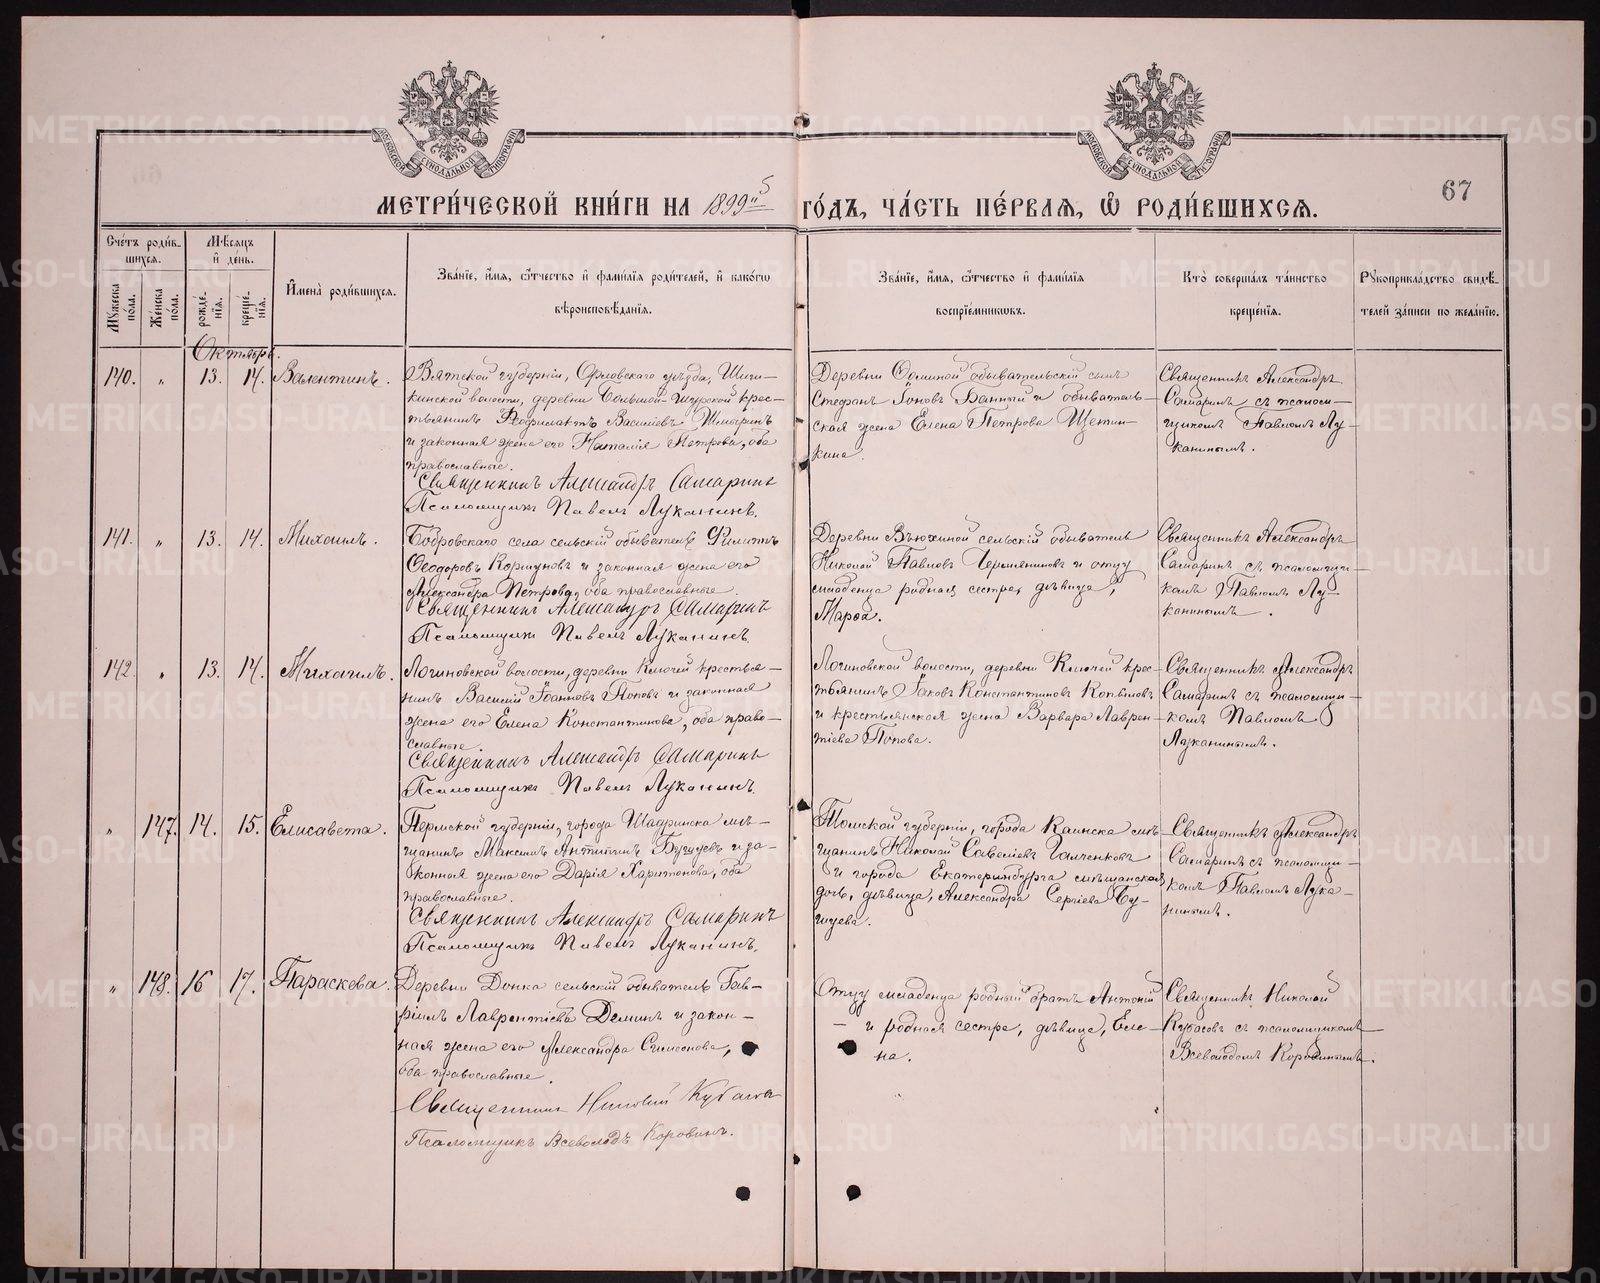 МЕТРИ́ЧЕСКОЙ КНИ́ГИ НА 1899й ГО́ДЪ, ЧА́СТЬ ПЕ́РВАЯ, Ѡ РОДИ́ВШИХСЯ.
67
Сче́тъ роди́в-
шихся.
Мѣ́сяцъ
и де́нь.
Мꙋ́жеска по́ла.
Же́нска по́ла.
рожде́-
нїя.
креще́-
нїя.
Имена̀ роди́вшихся.
Зва́нїе, и́мя, ѻ́тчество и фами́лїя роди́телей, и како́гѡ
вѣроисповѣ́данїя.
Зва́нїе, и́мя, ѻ́тчество и фами́лїя
воспрїе́мникѡвъ.
Кто̀ соверша́лъ та́инство
креще́нїя.
Рꙋкоприкла́дство свидѣ́-
телей за́писи по жела́нїю.
Октябрь.
140. „ 13. 14. Валентинъ.
Вятской губерніи, Орловскаго уѣзда, Шиги-
кинской волости, деревни Большой-Шурской крес-
тьянинъ Феофилактъ Василіевъ Шмыринъ
и законная жена его Наталія Петрова, оба
православные.
Священникъ Александръ Самаринъ
Псаломщикъ Павелъ Луканинъ.
Деревни обывательскій сынъ
Стефанъ Іоновъ Банныхъ и обыватель-
ская жена Елена Петрова Щетин-
кина.
Священникъ Александръ
Самаринъ съ псалом-
щикомъ Павломъ Лу-
канинымъ.
141. „ 13. 14. Михаилъ.
Бобровскаго села сельскій обыватель Филиппъ
Ѳеодоровъ Коршуновъ и законная жена его
Александра Петрова, оба православные.
Священникъ Александръ Самаринъ
Псаломщикъ Павелъ Луканинъ.
Деревни Вьюхиной сельскій обыватель
Николай Павловъ Черемяниновъ и отцу
младенца родная сестра, дѣвица,
Марѳа.
Священникъ Александръ
Самаринъ съ псаломщи-
комъ Павломъ Лу-
канинымъ.
142. „ 13. 14. Михаилъ.
Логиновской волости, деревни Ключей крестья-
нинъ Василій Іоанновъ Поповъ и законная
жена его Елена Константинова, оба право-
славные.
Священникъ Александръ Самаринъ
Псаломщикъ Павелъ Луканинъ.
Логиновской волости, деревни Ключей крес-
тьянинъ Іаковъ Константиновъ Копыловъ
и крестьянская жена Варвара Лаврен-
тіева Попова.
Священникъ Александръ
Самаринъ съ псаломщи-
комъ Павломъ
Луканинымъ.
„ 147. 14. 15. Елисавета.
Пермской губерніи, города Шадринска мѣ-
щанинъ Максимъ Антипинъ Бушуевъ и за-
конная жена его Дарія Харитонова, оба
православные.
Священникъ Александръ Самаринъ
Псаломщикъ Павелъ Луканинъ.
Томской губерніи, города Каинска мѣ-
щанинъ Николай Савеліевъ Галченковъ
и города Екатеринбурга мѣщанская
дочь, дѣвица, Александра Сергіева Бу-
шуева.
Священникъ Александръ
Самаринъ съ псаломщи-
комъ Павломъ Лука-
нинымъ.
„ 148. 16 17. Параскева.
Деревни Донка сельскій обыватель Гав-
ріилъ Лаврентіевъ Деминъ и закон-
ная жена его Александра Симеонова,
оба православные.
Священникъ Николай Кубасовъ
Псаломщикъ Всеволодъ Коровинъ.
Отцу младенца родный братъ Антоній
и родная сестра, дѣвица, Еле-
на.
Священникъ Николай
Кубасовъ съ псаломщикомъ
Всеволодомъ Коровинымъ.
METRIKI.GASO-URAL.RU